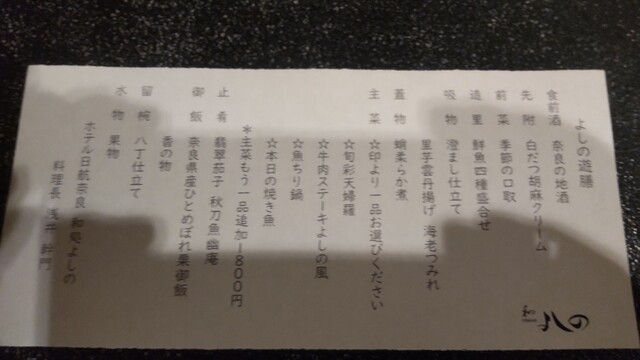 よしの遊膳
食前酒 奈良の地酒
先附 白だつ胡麻クリーム
前菜 季節の口取
造里 鮮魚四種盛合せ
吸物 澄まし仕立て
里芋雲丹揚げ 海老つみれ
蓋物 蛸柔らか煮
主菜 ☆印より一品お選びください
☆旬彩天婦羅
☆牛肉ステーキよしの風
☆魚ちり鍋
☆本日の焼き魚
*主菜もう一品追加1800円
止肴 翡翠茄子 秋刀魚幽庵
御飯 奈良県産ひとめぼれ栗御飯
香の物
留椀 八丁仕立て
水物 果物
ホテル日航奈良 和処よしの
料理長 浅井 門
和 よしの